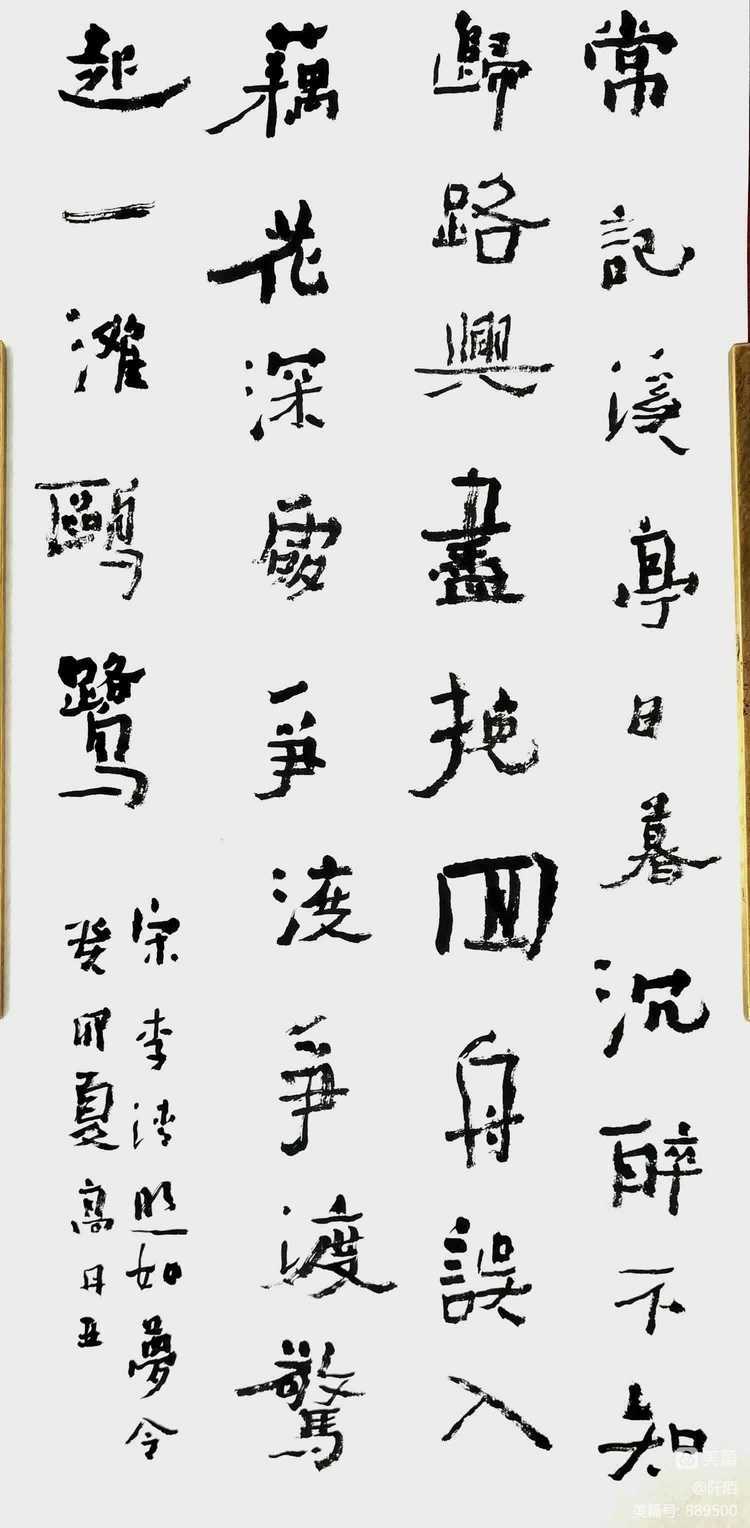 常記溪亭日暮沉醉不知
歸路興盡挽回舟誤入
藕花深處爭渡爭渡驚
起一濯鷗鷺
宋李清照如夢令
癸卯夏高日
美篇
@阡陌
美篇号: 889500